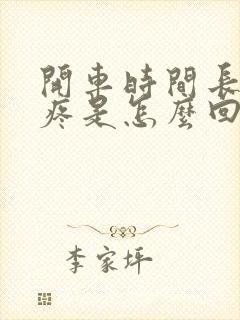 開車時間長
疼是怎麼回
李家坪